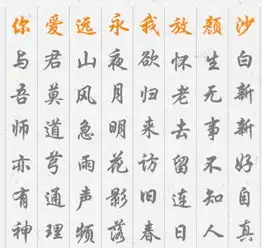 沙白新新好自真
颜生无事不知人
放怀老去留连日
我欲归来访旧春
永夜月明花影落
远山风急雨声频
爱君莫道兮通理
你与吾师亦有神